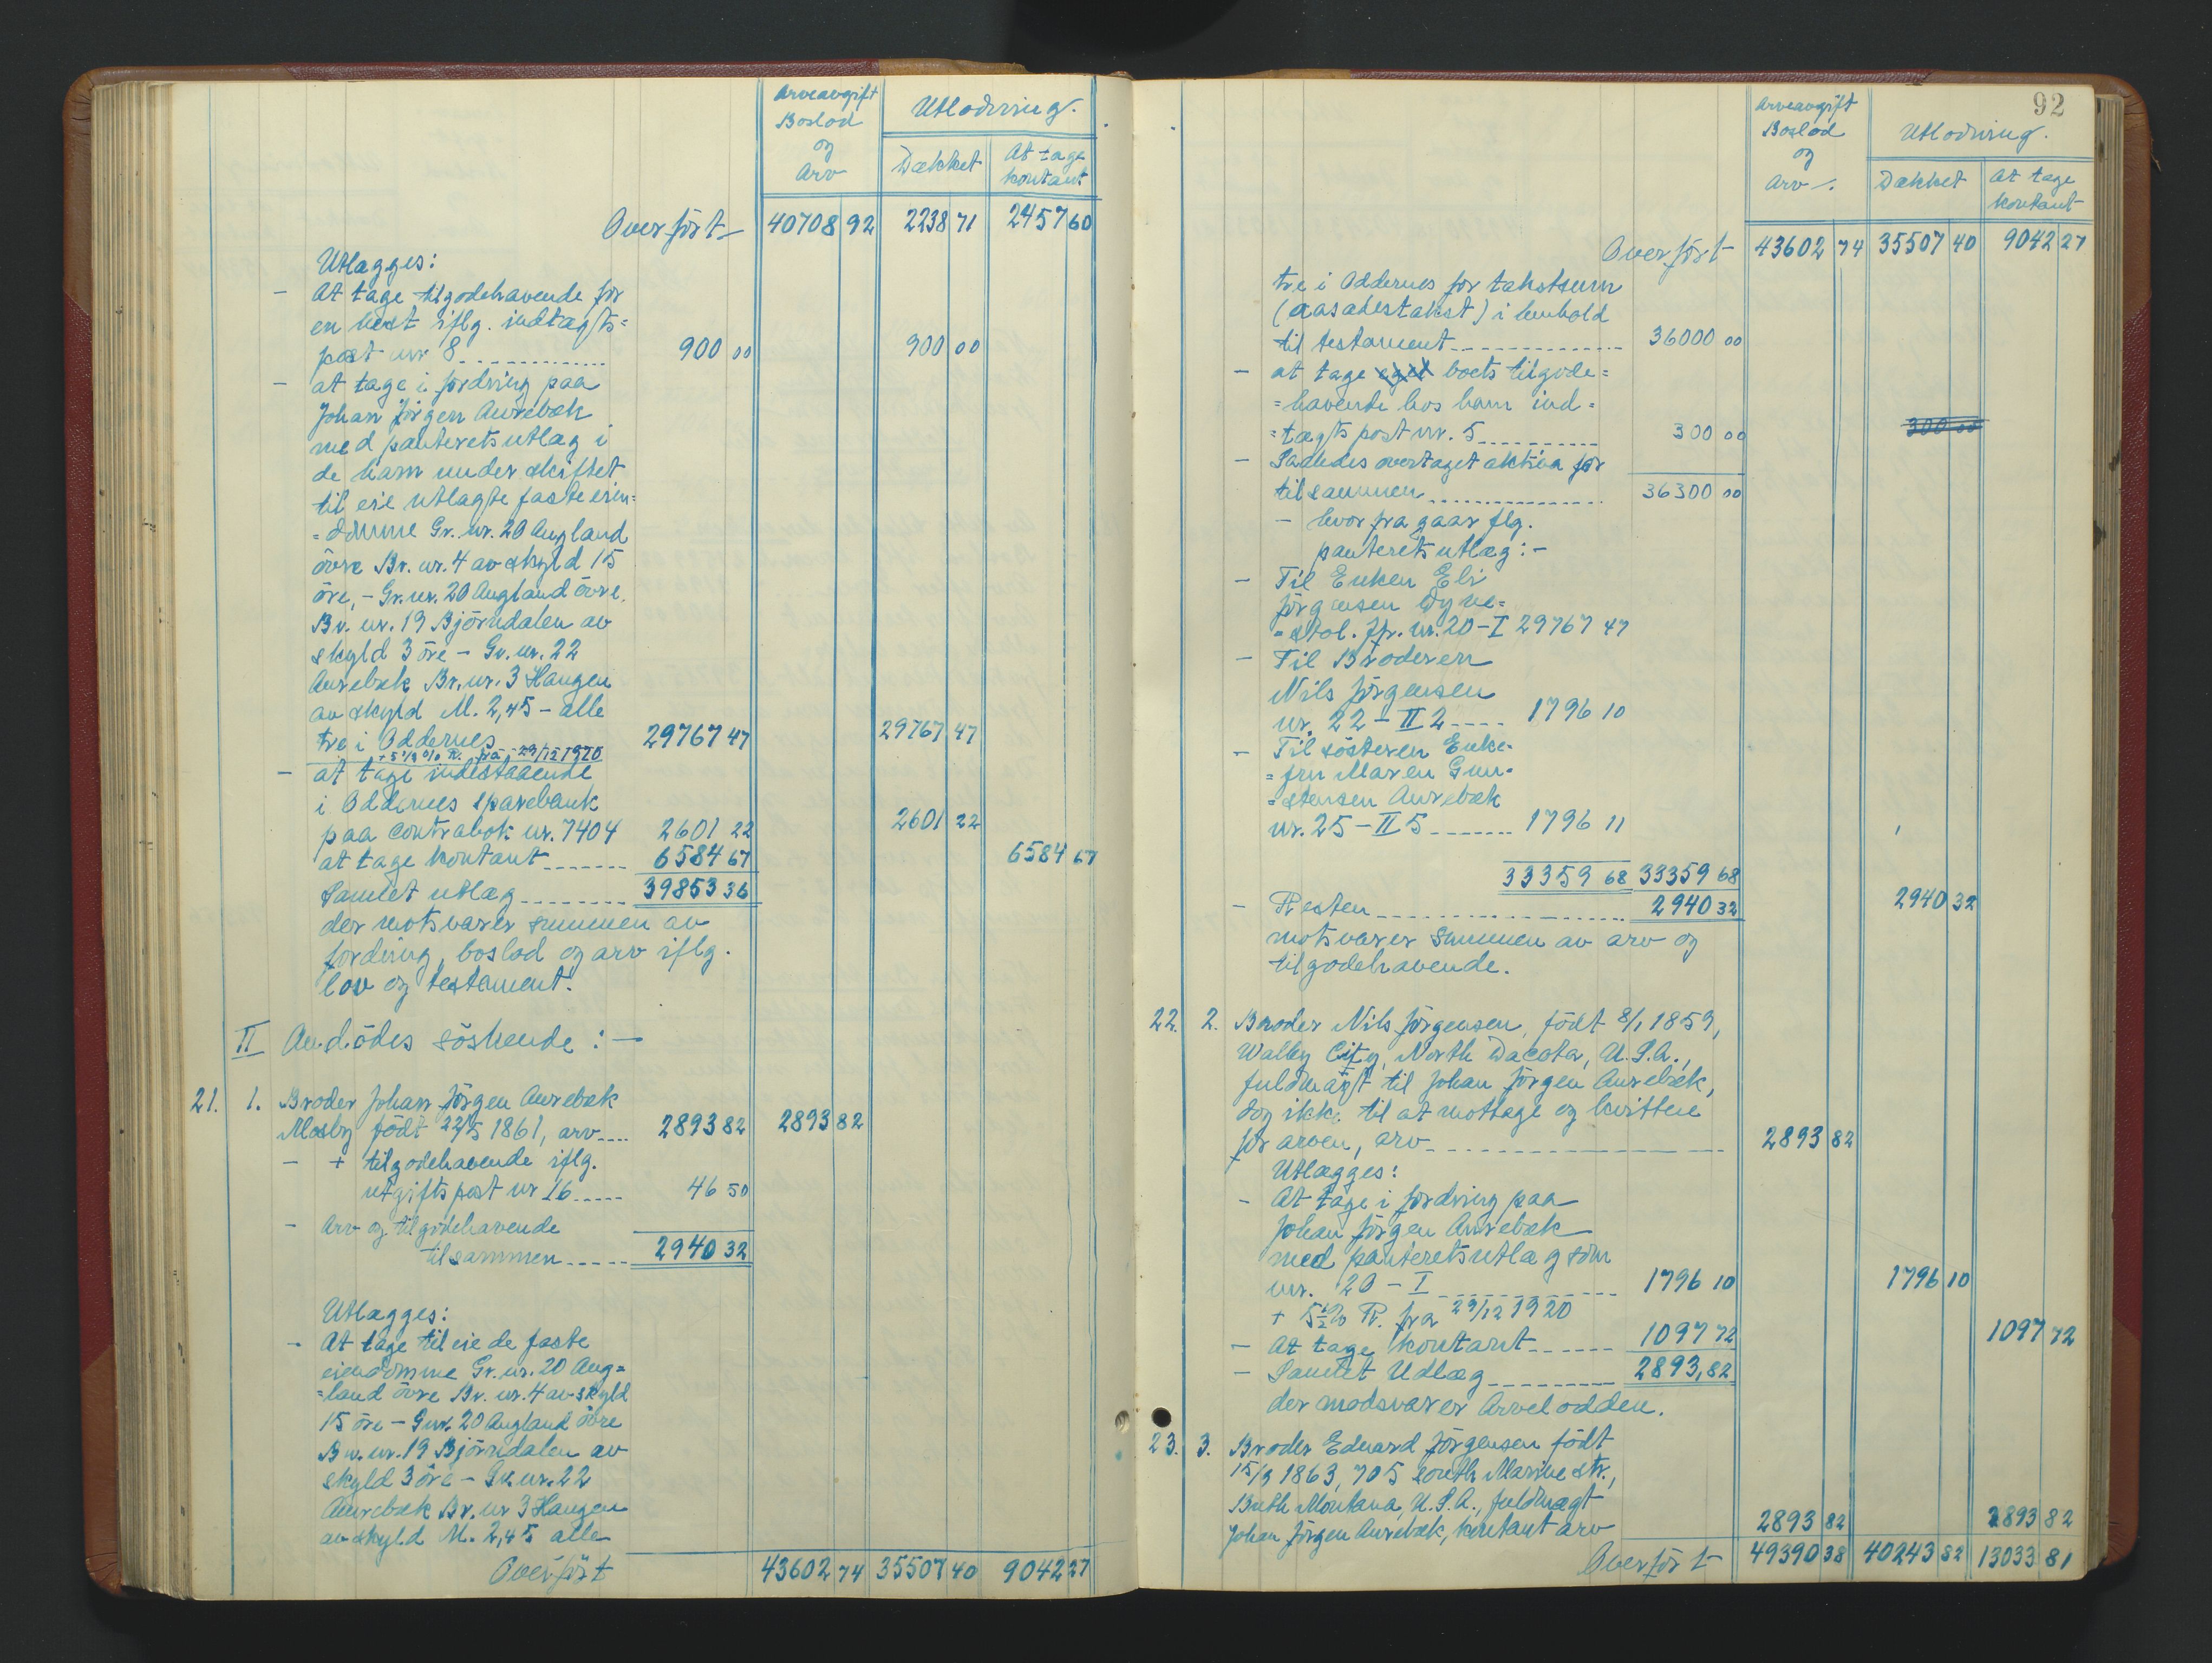 Arveavgift
Boslod
og
Arv
Utlodning.
Dækket
At tage
kontant
Overført 40708 92 2238 71 2457 60
Utlægges:
- At tage tilgodehavende for
en hest iflg. indtægts=
post nr 8 900 00 900 00
- at tage i fordring paa
Johan Jörgen Aurebæk
med panteretsutlæg i
de ham under skiftet
til eie utlagte faste eien=
=domme Gr. nr. 20 Augland
övre Br. nr. 4 av skyld 15
öre, - Gr. nr. 20 Augland övre.
Br. nr. 19 Björndalen av
skyld 3 öre - Gr. nr. 22
Aurebæk Br. nr. 3 Haugen
av skyld M. 2,45 - alle
tre i Oddernes 29767 47 29767 47
+ 5 1/2 % R. fra 29/12 1920
- at tage indestaaende
i Oddernes Sparebank
paa contrabok nr. 7404 2601 22 2601 22
at tage kontant 6584 67 6584 67
Samlet utlæg 39853 36
der motsvarer summen av
fordring, boslod og arv iflg.
lov og testament.
II Avdödes söskende: -
21. 1. Broder Johan Jörgen Aurebæk
Mosby födt 22/5 1861, arv 2893 82 2893 82
- + tilgodehavende iflg.
utgiftspost nr 16 46 50
- Arv og tilgodehavende
tilsammen 2940 32
Utlægges:
- At tage til eie de faste
eiendomme Gr. nr. 20 Aug=
=land övre Br. nr. 4 av skyld
15 öre - Gnr. 20 Augland övre
Br. nr. 19 Björndalen av
skyld 3 öre - Gr. nr. 22
Aurebæk Br. nr 3 Haugen
av skyld M. 2,45 alle
Overført 43602 74 35507 40 9042 27
92
Arveavgift
Boslod
og
Arv
Utlodning.
Dækket
At tage
kontant
Overført 43602 74 35507 40 9042 27
tre i Oddernes for takstsum
(aasædestakst) i henhold
til testament 36000 00
- at tage eget boets tilgode=
=havende hos ham ind=
=tægtspost nr. 5 300 00 300 00
- Saaledes overtaget aktiva for
tilsammen 36300 00
- hvor fra gaar flg.
panteretsutlæg: -
- Til Enken Eli
Jörgensen Dyne=
=stol. jfr. nr. 20-I 29767 47
- Til Broderen
Nils Jörgensen
nr. 22 - II 2 1796 10
- Til sösteren Enke=
=fru Maren Gun=
=stensen Aurebæk
nr. 25 - II 5 1796 11
33359 68 33359 68
- Resten 2940 32 2940 32
motsvarer summen av arv og
tilgodehavende.
22. 2. Broder Nils Jörgensen, födt 8/1 1859,
Walby City, North Dacota, U.S.A.,
fuldmagt til Johan Jörgen Aurebæk,
dog ikke til at mottage og kvittere
for arven, arv 2893 82
Utlægges:
- At tage i fordring paa
Johan Jörgen Aurebæk
med panteretsutlæg som
nr. 20 - I 1796 10 1796 10
+ 5 1/2 % R. fra 29/12 1920
- At tage kontant 1097 72 1097 72
- Samlet Udlæg 2893,82
der modsvarer Arvelodden.
23. 3. Broder Edvard Jörgensen födt
15/9 1863, 705 south Marine str.,
Buth Montana, U.S.A., fuldmagt
Johan Jörgen Aurebæk, kontant arv 2893 82 2893 82
Overført 49390 38 40243 82 13033 81